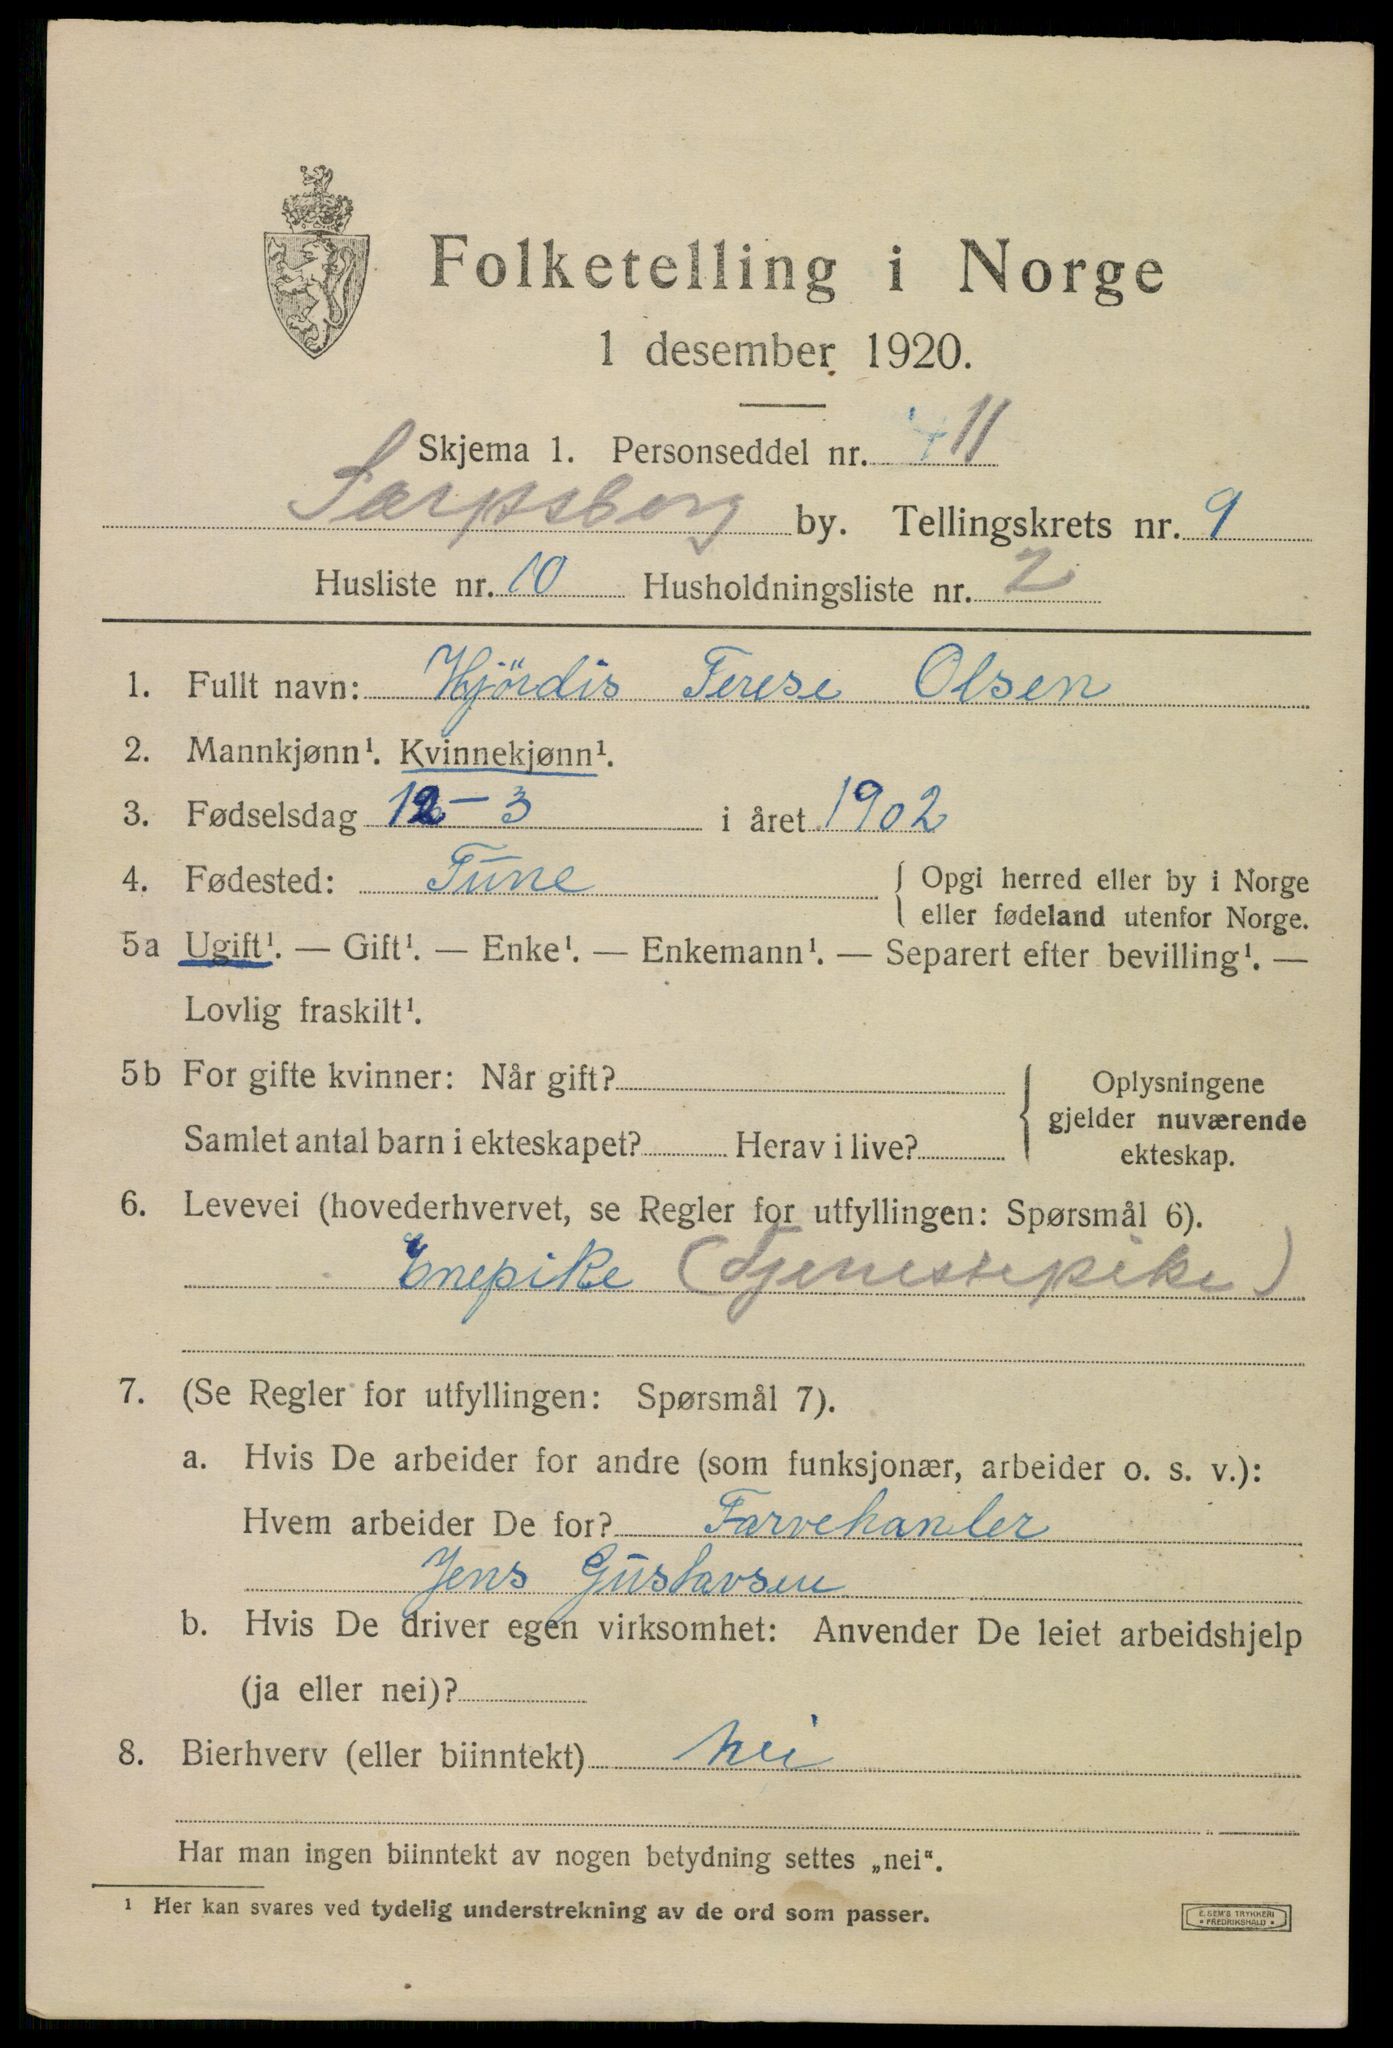 Folketelling i Norge
1 desember 1920.
Skjema 1. Personseddel nr. 11
Sarpsborg by. Tellingskrets nr. 9
Husliste nr. 10 Husholdningsliste nr. 2
1. Fullt navn: Hjördis Terese Olsen
2. Mannkjønn¹. Kvinnekjønn¹.
3. Fødselsdag 12 – 3 i året 1902
4. Fødested: Tune { Opgi herred eller by i Norge
eller fødeland utenfor Norge.
5a Ugift¹. — Gift¹. — Enke¹. — Enkemann¹. — Separert efter bevilling¹. —
Lovlig fraskilt¹.
5b For gifte kvinner: Når gift? { Oplysningene
gjelder nuværende
Samlet antal barn i ekteskapet? Herav i live? ekteskap.
6. Levevei (hovederhvervet, se Regler for utfyllingen: Spørsmål 6).
Enepike (Tjenestepike)
7. (Se Regler for utfyllingen: Spørsmål 7).
a. Hvis De arbeider for andre (som funksjonær, arbeider o. s. v.):
Hvem arbeider De for? Farvehanler
Jens Gustavsen
b. Hvis De driver egen virksomhet: Anvender De leiet arbeidshjelp
(ja eller nei)?
8. Bierhverv (eller biinntekt) nei
Har man ingen biinntekt av nogen betydning settes „nei“.
¹ Her kan svares ved tydelig understrekning av de ord som passer.
E. SEM'S TRYKKERI
* FREDRIKSHALD *